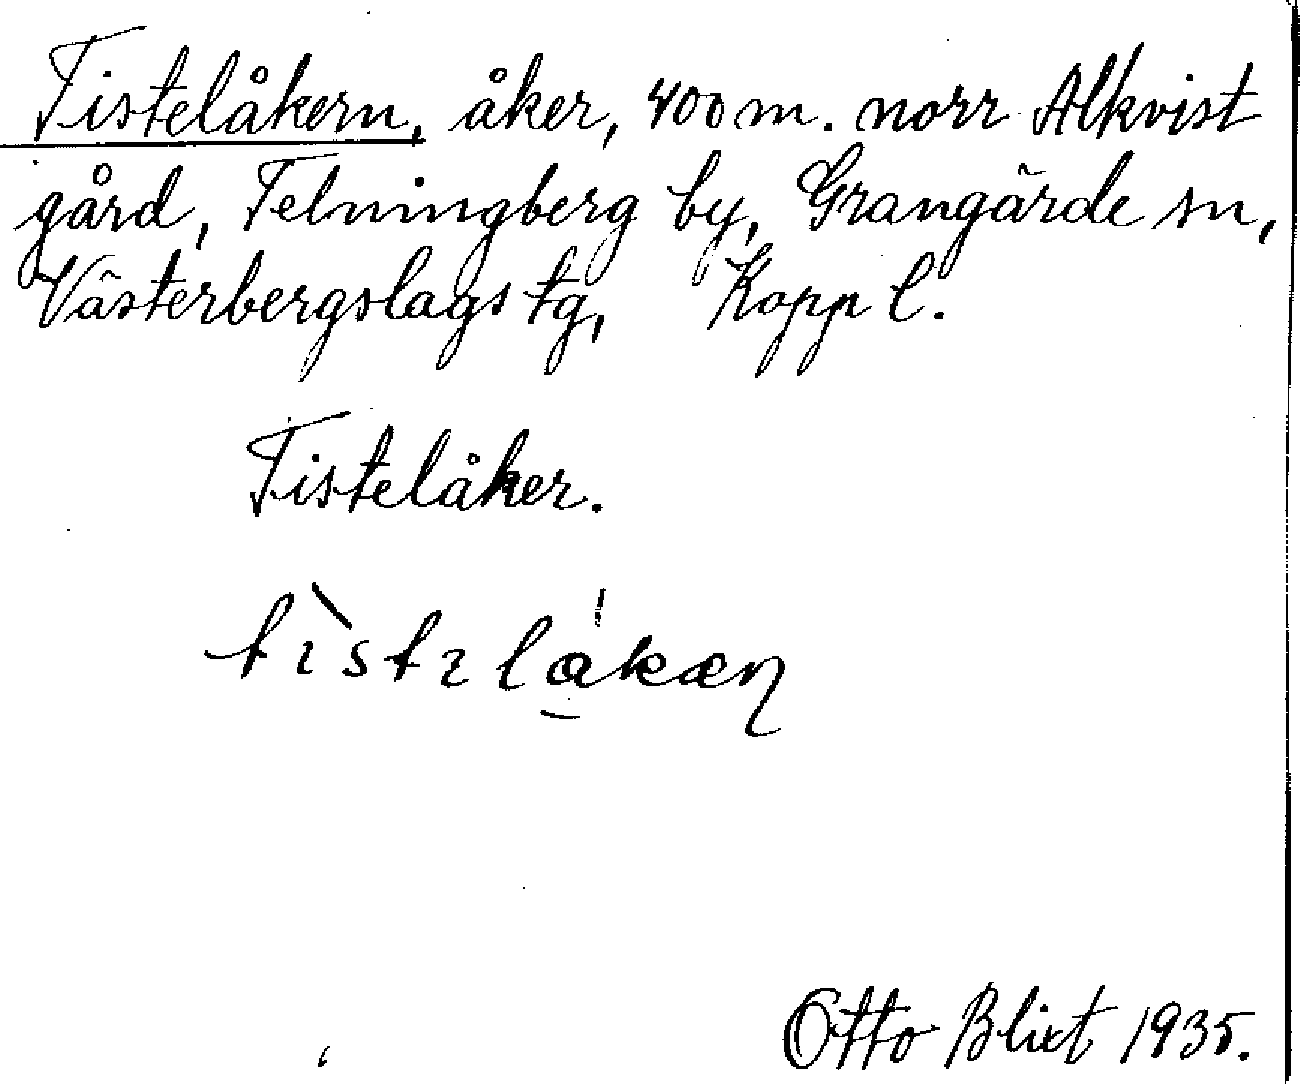 Tisteläkern, åker, 400 m. norr Alkvist
gård, Telningberg by, Grangärde sn,
Västerbergslags tg, Kopp l.
Tistelåker.
tìstɩlåkæn
Otto Blixt 1935.